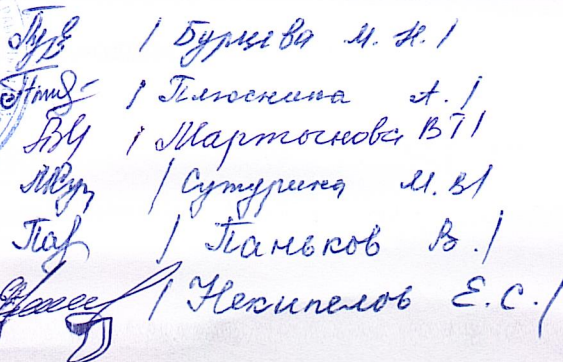 / Бурцева М. Н. /
/ Плюснина А. /
/ Мартынова ВТ/
/ Сутурина М. В/
/ Паньков В. /
/ Некипелов Е. С. /